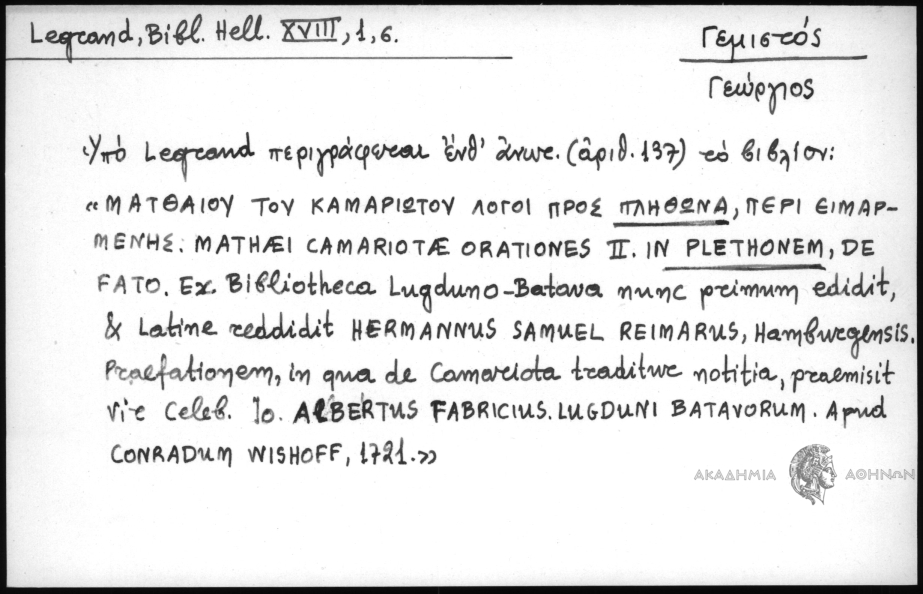 Legrand, Bibl. Hell. XVIII, 1, 6.
Γεμιστός
Γεώργιος
Ὑπό Legrand περιγράφεται ἔνθ' ἄνωτ. (ἀριθ. 137) τό βιβλίον:
«ΜΑΤΘΑΙΟΥ ΤΟΥ ΚΑΜΑΡΙΩΤΟΥ ΛΟΓΟΙ ΠΡΟΣ ΠΛΗΘΩΝΑ, ΠΕΡΙ ΕΙΜΑΡ-
ΜΕΝΗΣ. MATHÆI CAMARIOTÆ ORATIONES II. IN PLETHONEM, DE
FATO. Ex Bibliotheca Lugduno-Batava nunc primum edidit,
& Latine reddidit HERMANNUS SAMUEL REIMARUS, Hamburgensis.
Praefationem, in qua de Camariota traditur notitia, praemisit
Vir Celeb. Io. ALBERTUS FABRICIUS. LUGDUNI BATAVORUM. Apud
CONRADUM WISHOFF, 1721.»
ΑΚΑΔΗΜΙΑ ΑΘΗΝΩΝ